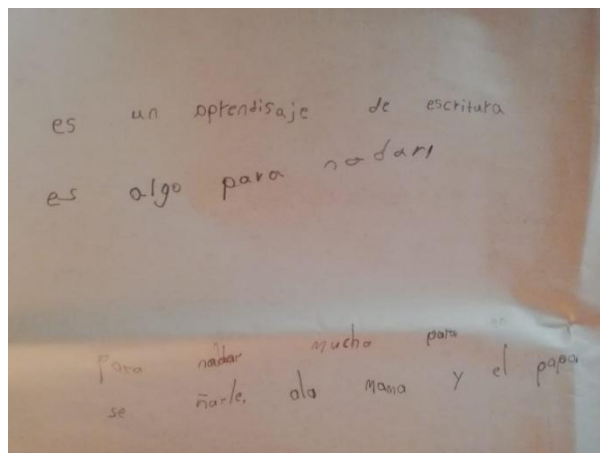 es un aprendisaje de escritura
es algo para nadar,
Para nadar mucho para
se ñarle. ala mama y el papa